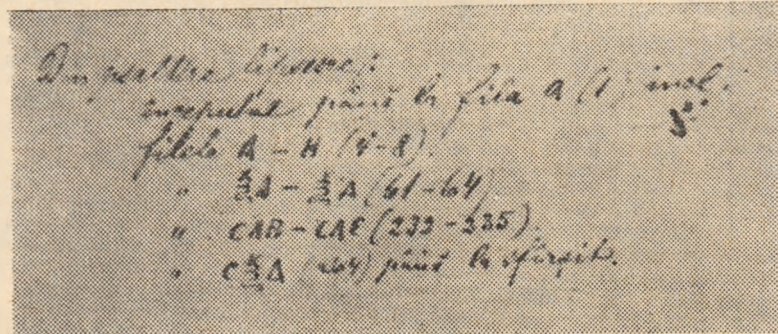 Din psaltire lipsesc:
începutul pînă la fila a (1) incl.;
filele Д – Н (4-8).
" ѮА – ѮД (61-64)
" СЛВ – СЛЕ (232-235).
" СѮД (264) pînă la sfîrșit.